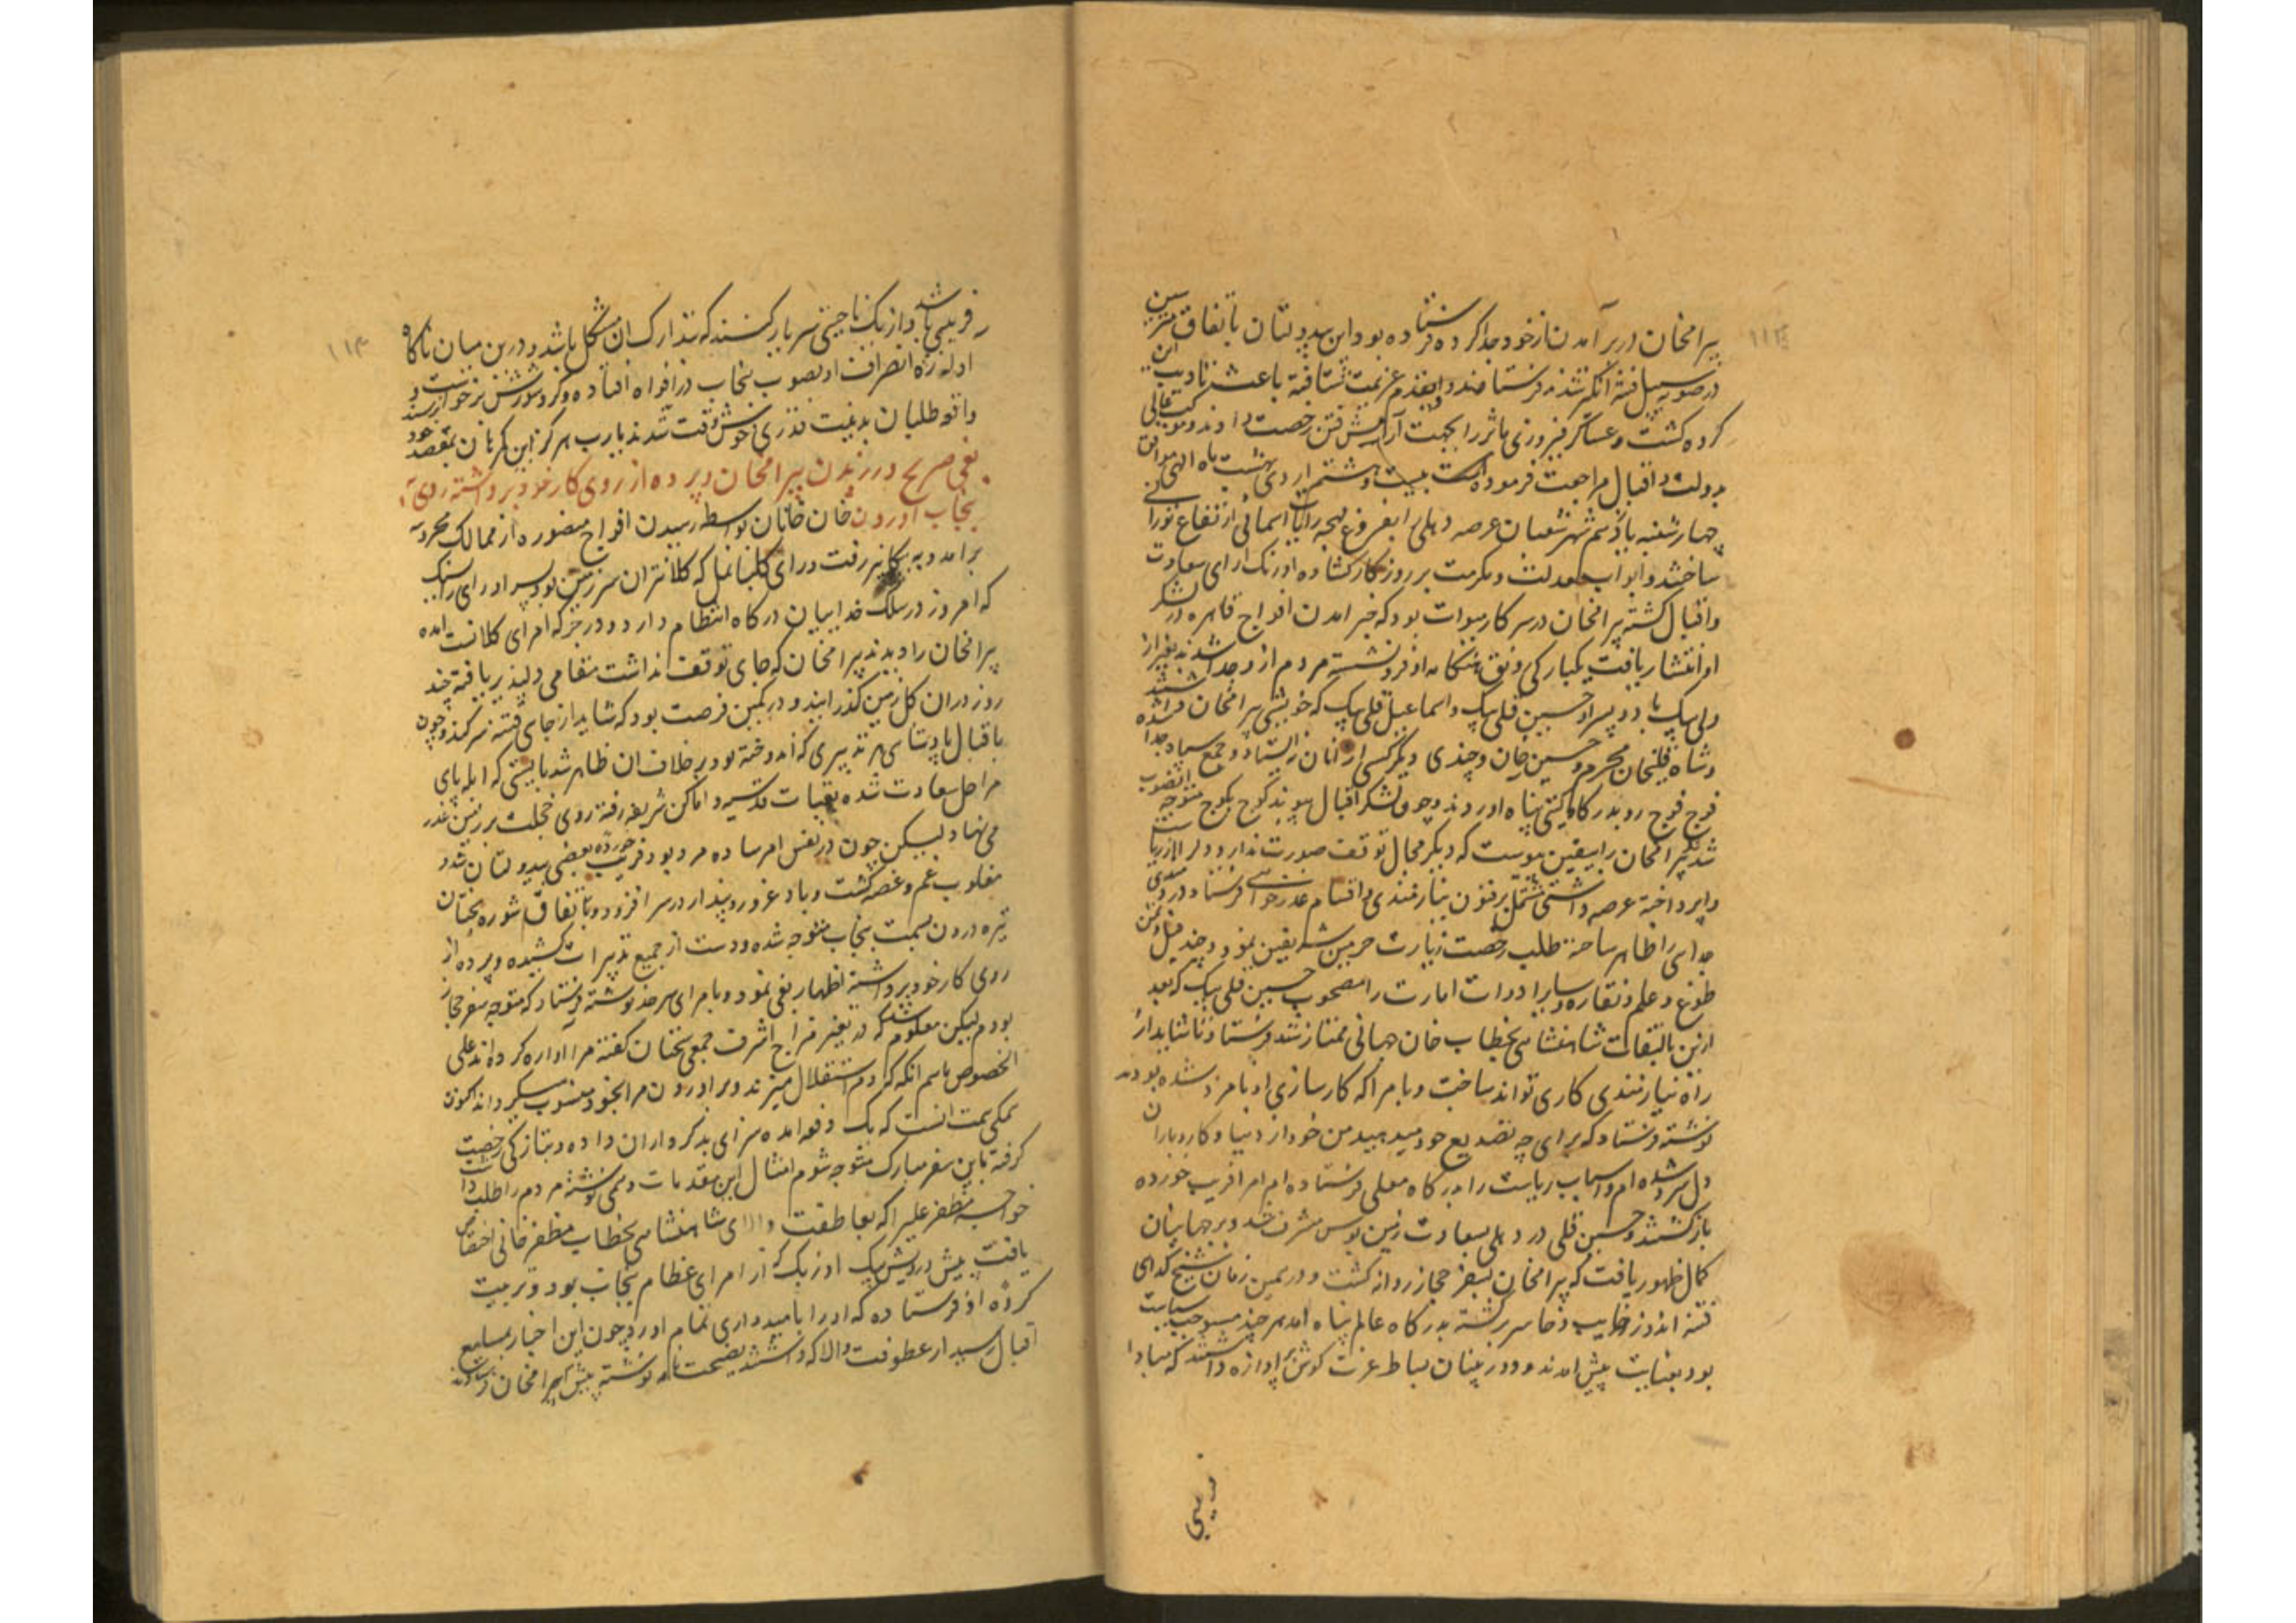 ۱۱۳
بیرامخان در برآمدن از خود جدا کرده فرستاده بود این بیدولتان باتفاق
در صوبه سیل فتنه انگیز شدند فرستادند و بقدم عزیمت شتافته باعث تادیب این
کرده گشت و عساکر فیروزی ماثر را بجهت رفتن رخصت دادند و موکب عالی
بدولت و اقبال مراجعت فرموده بیست و هشتم اردی بهشت ماه الهی موافق
چهارشنبه یازدهم شهر شعبان عرصه دهلی را بفروغ رایات اسمانی ارتفاع نورانی
ساختند و ابواب معدلت و مکرمت بر روزکار کشاده اورنک ارای سعادت
و اقبال کشته بیرامخان در سرکار میوات بود که خبر امدن افواج قاهره در لشکر
او انتشار یافت یکبارکی رونق هنکامه او فرونشسته مردم از و جدا شدند بغیر از
ولی بیک با دو پسر او حسین قلی بیک و اسماعیل قلی بیک که خویش بیرامخان
و شاه قلیخان محرم و حسین خان و چندی دیکر کسی از انان نه ایستاد و جمع سپاه جدا شده
فوج فوج رو بدرکاه کیتی پناه اوردند و چون لشکر اقبال پیوند کوچ بکوچ متوجه
شد بیرامخان را بیقین پیوست که دیکر مجال توقف صورت ندارد دل از
واپرداخته عرضه داشتی مشتمل بر فنون نیازمندی و اقسام عذرخواهی فرستاد و درو
جدایی را ظاهر ساخته طلب رخصت زیارت حرمین شریفین نمود و چند فیل و تمن
طوغ و علم و نقاره و سایر ادوات امارت را مصحوب حسین قلی بیک که بعد
ازین بالتفات شاهنشاهی بخطاب خان جهانی ممتاز شد فرستاد تا شاید از
راه نیازمندی کاری تواند ساخت و بامرا که کارسازی او نامزد شده بودند
نوشته فرستاد که برای چه تصدیع خود میدهید من خود از دنیا و کاروبار ان
دل سرد شده ام و اسباب ریاست را بدرکاه معلی فرستاده ام امرا فریب خورده
بازکشتند و حسین قلی در دهلی بسعادت زمین بوس مشرف شد و بر جهانیان
کمال ظهور یافت که بیرامخان بسفر حجاز روانه کشت و در همین زمان شیخ کدای
فتنه اندوز خایب و خاسر برکشته بدرکاه عالم پناه امد هر چند مستوجب سیاست
بود بعنایت پیش امدند و دوربینان بساط عزت کوش بر اوازه داشتند که مبادا
فریبی
۱۱۴
فریبی باشد و از یک ناحیتی سر بار کنند که تدارک ان مشکل باشد و درین میان ناکاه
اوازه انصراف او بصوب پنجاب در افواه افتاده و کرد شورش برخواست و
واقعه طلبان بدنیت قدری خوش وقت شدند یارب هرکز این کربان بمقصد خود نرسند
بغی صریح در زیدن بیرامخان و پرده از روی کار خود برداشته روی
بپنجاب اوردن خان خانان بواسطه رسیدن افواج منصوره از ممالک محروسه
برامد و به بیکانیر رفت و رای کلیانمل که کلانتران سرزمین بود و پسر او رای راسنک
که امروز در سلک فداییان درکاه انتظام دارد و در جرکه امرای کلانست امده
بیرامخان را دیدند بیرامخان که جای توقف نداشت مقامی دلپذیر یافته چند
روز دران کل زمین کذرانید و در کمین فرصت بود که شاید از جای فتنه سر کند و چون
باقبال پادشاهی هر تدبیری که اندوخته بود بر خلاف ان ظاهر شد بایستی که ابله پای
مراحل سعادت شده بعتبات قدسیه و اماکن شریفه رفته روی خجلت بر زمین عذر
می نهاد لیکن چون در نفس امر ساده مرد بود فریب خورده بعضی بیدولتان شد و
مغلوب غم و غصه کشت و باد غرور و پندار در سر افزود و باتفاق شوره بختان
تیره درون بسمت پنجاب متوجه شده و دست از جمیع تدبیرات کشیده و پرده از
روی کار خود برداشته اظهار بغی نمود و بامرای سرحد نوشته فرستاد که متوجه سفر حجاز
بودم لیکن معلوم شد که در تغیر مزاج اشرف جمعی سخنان کفته مرا اواره کرده اند علی
الخصوص ماهم انکه که دم استقلال میزند و براوردن مرا بخود منسوب میکرداند اکنون
همکی همت انست که یک دفعه امده سزای بدکرداران داده و بتازکی رخصت
کرفته باین سفر مبارک متوجه شوم امثال این مقدمات و همی نوشته مردم را طلب داشت
خواجه مظفر علی را که بعاطفت والای شاهنشاهی بخطاب مظفر خانی اختصاص
یافت پیش درویش بیک اوزبک که از امرای عظام پنجاب بود و تربیت
کرده او فرستاده که او را بامیدواری تمام اورد چون این اخبار بمسامع
اقبال رسید از عطوفت والا که داشتند نصیحت نامه نوشته پیش بیرامخان فرستادند